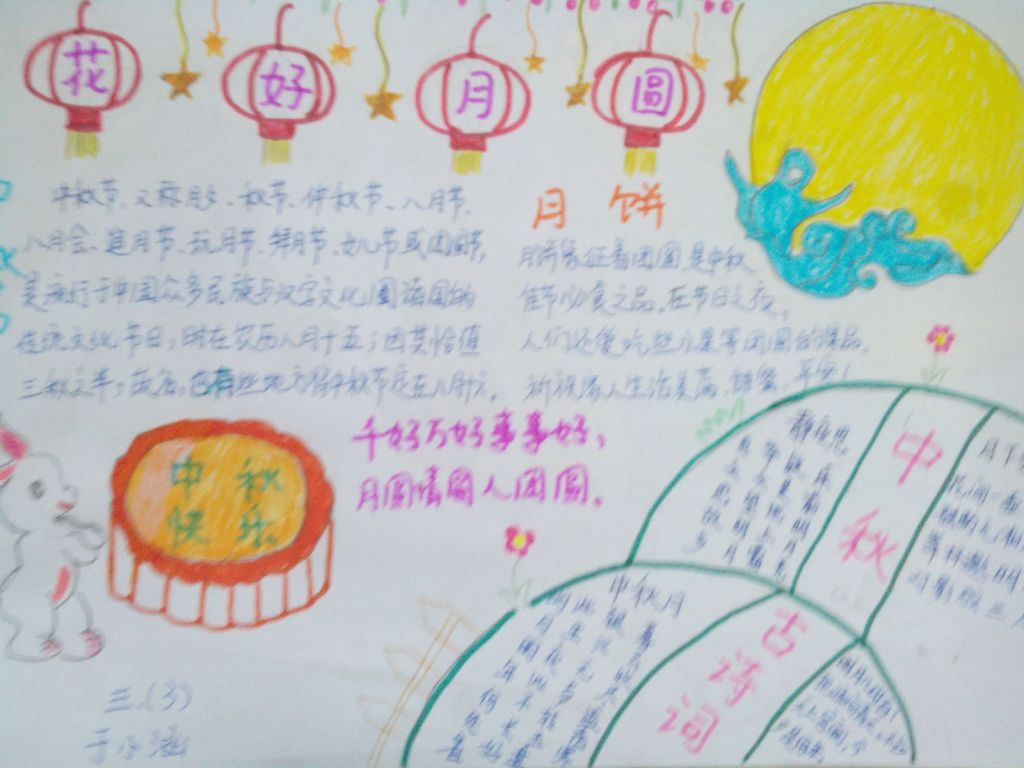 花好月圆
中秋节、又称月夕、秋节、仲秋节、八月节、
八月会、追月节、玩月节、拜月节、女儿节或团圆节,
是流行于中国众多民族与汉字文化圈诸国的
传统文化节日,时在农历八月十五;因其恰值
三秋之半,故名,也有些地方将中秋节定在八月十六。
月饼
月饼象征着团圆,是中秋
佳节必食之品。在节日之夜,
人们还爱吃些水果等团圆的
祈祝家人生活美满、甜蜜、平安!
千好万好事事好,
月圆情圆人团圆。
中秋
快乐
三.(3)
于小涵
中秋
静夜思
床前明月光,
疑是地上霜。
举头望明月,
低头思故乡
古诗词
中秋月
暮云收尽溢清寒
银汉无声转玉盘
此生此夜不长好
明月明年何处看
月下
花间一壶
独酌无相
举杯邀明
对影成三人
明月几时有?
把酒问青天。不知
天上宫阙,今
夕是何年。